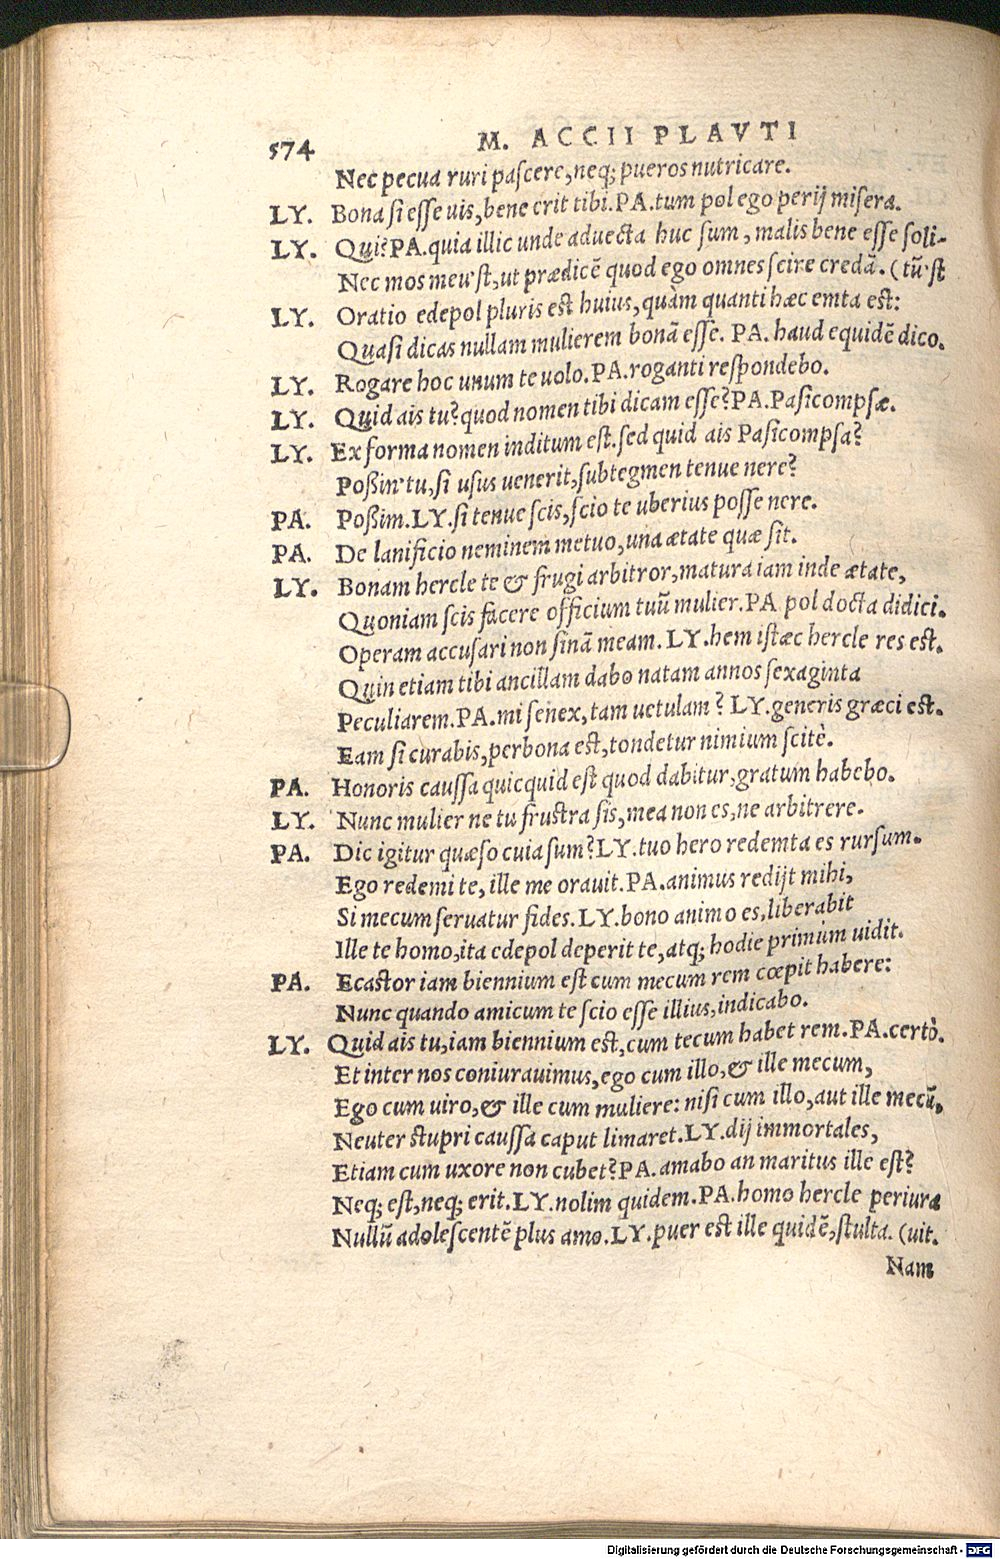 574 M. ACCII PLAVTI
Nec pecua ruri pascere, neq; pueros nutricare.
LY. Bona si esse uis, bene erit tibi. PA. tum pol ego perij misera.
LY. Qui? PA. quia illic unde aduecta huc sum, malis bene esse soli-
Nec mos meu'st, ut prædicē quod ego omnes scire credā. (tū'st
LY. Oratio edepol pluris est huius, quàm quanti hæc emta est:
Quasi dicas nullam mulierem bonā esse. PA. haud equidē dico.
LY. Rogare hoc unum te uolo. PA. roganti respondebo.
LY. Quid ais tu? quod nomen tibi dicam esse? PA. Pasicompsæ.
LY. Ex forma nomen inditum est. sed quid ais Pasicompsa?
Poßin' tu, si usus uenerit, subtegmen tenue nere?
PA. Poßim. LY. si tenue scis, scio te uberius posse nere.
PA. De lanificio neminem metuo, una ætate quæ sit.
LY. Bonam hercle te & frugi arbitror, matura iam inde ætate,
Quoniam scis facere officium tuū mulier. PA pol docta didici.
Operam accusari non sinā meam. LY. hem istæc hercle res est.
Quin etiam tibi ancillam dabo natam annos sexaginta
Peculiarem. PA. mi senex, tam uetulam? LY. generis græci est.
Eam si curabis, perbona est, tondetur nimium scitè.
PA. Honoris caussa quicquid est quod dabitur, gratum habebo.
LY. Nunc mulier ne tu frustra sis, mea non es, ne arbitrere.
PA. Dic igitur quæso cuia sum? LY. tuo hero redemta es rursum.
Ego redemi te, ille me orauit. PA. animus redijt mihi,
Si mecum seruatur fides. LY. bono animo es, liberabit
Ille te homo, ita edepol deperit te, atq; hodie primùm uidit.
PA. Ecastor iam biennium est cum mecum rem cœpit habere:
Nunc quando amicum te scio esse illius, indicabo.
LY. Quid ais tu, iam biennium est, cum tecum habet rem. PA. certò.
Et inter nos coniurauimus, ego cum illo, & ille mecum,
Ego cum uiro, & ille cum muliere: nisi cum illo, aut ille mecū,
Neuter stupri caussa caput limaret. LY. dij immortales,
Etiam cum uxore non cubet? PA. amabo an maritus ille est?
Neq; est, neq; erit. LY. nolim quidem. PA. homo hercle periura
Nullū adolescentē plus amo. LY. puer est ille quidē, stulta. (uit.
Nam
Digitalisierung gefördert durch die Deutsche Forschungsgemeinschaft - DFG